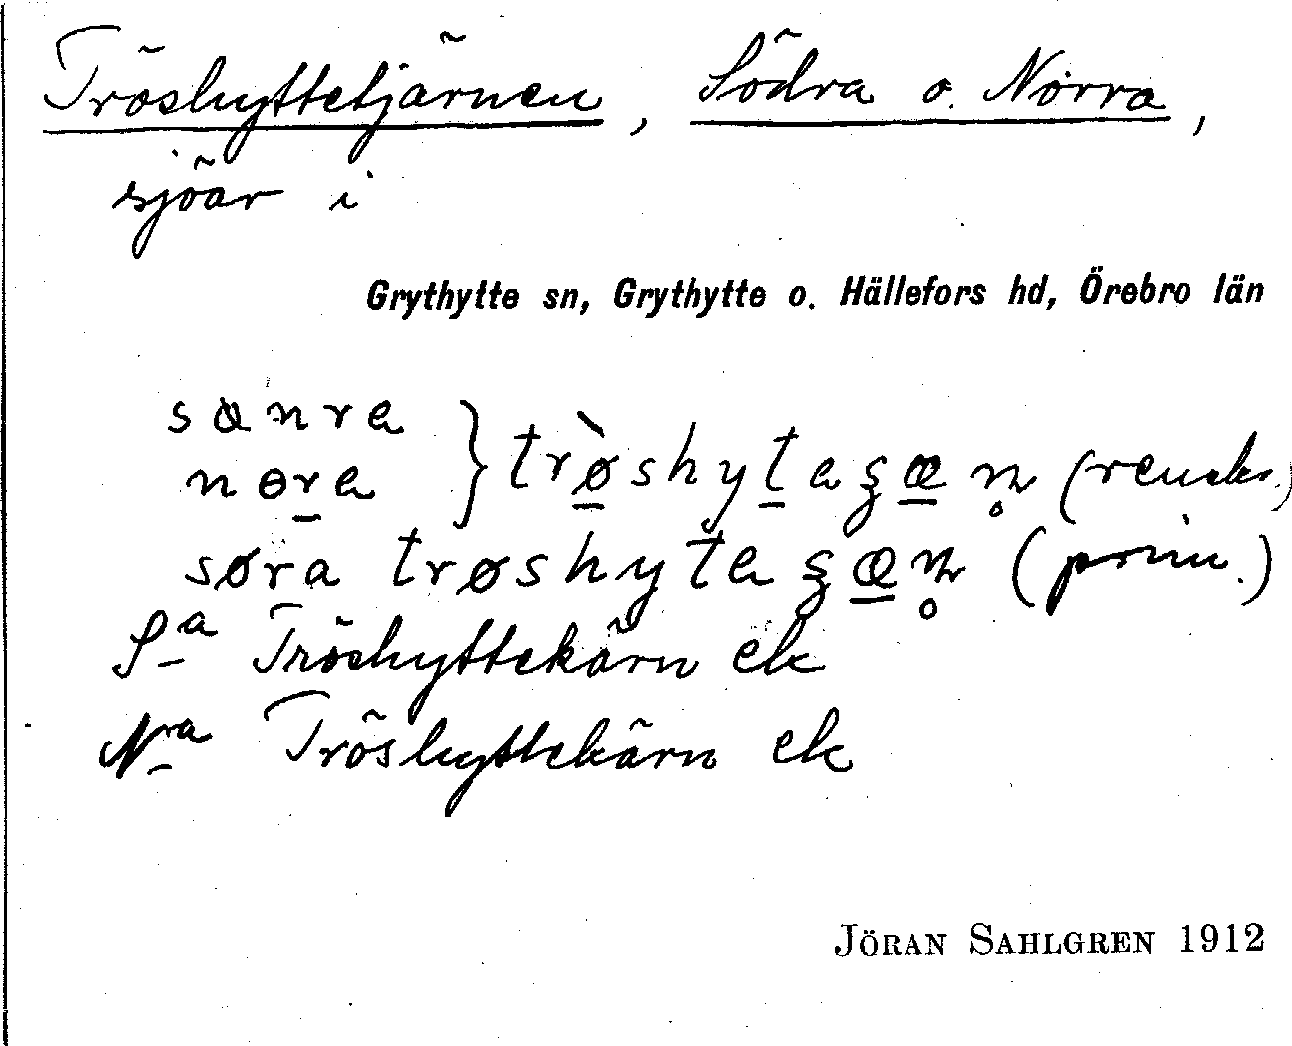 Tröshyttetjärnen, Södra o. Norra,
sjöar i
Grythytte sn, Grythytte o. Hällefors hd, Örebro län
sænra
nɵra } trø̀shytaʂæn̥ (renskr.)
søra trøshytaʂæn̥ (prim.)
Sa Tröshyttekärn ek
Nra Tröshyttekärn ek
JÖRAN SAHLGREN 1912